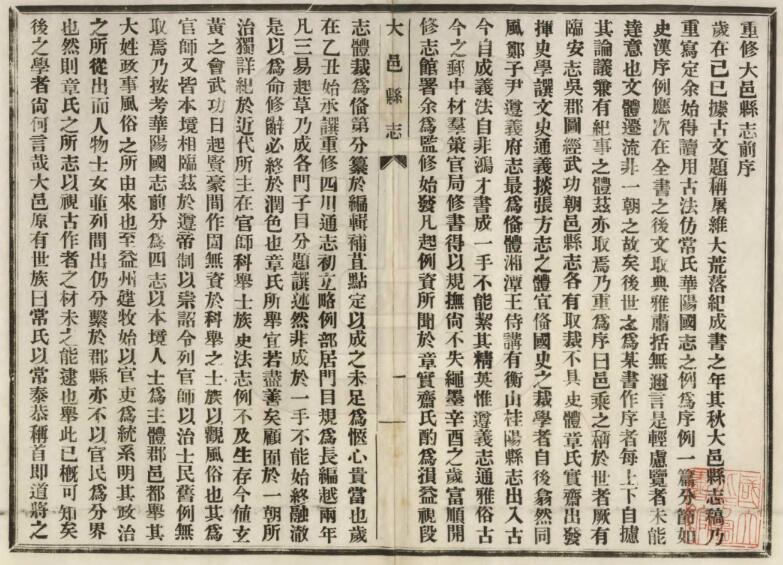 重修大邑縣志前序
歲在己巳據古文題稱屠維大荒落紀成書之年其秋大邑縣志稿乃
重寫定余始得讀用古法仿常氏華陽國志之例爲序例一篇分節如
史漢序例應次在全書之後文取典雅肅括無邇言是輕慮覽者未能
達意也文體遷流非一朝之故矣後世之爲某書作序者每上下自據
其論議兼有紀事之體茲亦取焉乃重爲序曰邑乘之稱於世者厥有
臨安志吳郡圖經武功朝邑縣志各有取裁不具史體章氏實齋出發
揮史學譔文史通義掞張方志之體宜俻國史之裁學者自後翕然同
風鄭子尹遵義府志最爲俻體湘潭王侍講有衡山桂陽縣志出入古
今自成義法自非鴻才書成一手不能絜其精英惟遵義志通雅俗古
今之郵中材羣策官局修書得以規撫尙不失繩墨辛酉之歲富順開
修志館署余爲監修始發凡起例資所聞於章實齋氏酌爲損益視段
大邑縣志
一
志體裁爲俻第分纂於編輯補苴點定以成之未足爲愜心貴當也歲
在乙丑始承譔重修四川通志初立略例部居門目規爲長編越兩年
凡三易起草乃成各門子目分題譔述然非成於一手不能始終融澈
是以爲命修辭必終於潤色也章氏所舉宜若盡善矣顧囿於一朝所
治獨詳紀於近代所主在官師科舉士族史法志例不及生存今値玄
黃之會武功日起賢豪間作固無資於科舉之士族以觀風俗也其爲
官師又皆本境相臨茲於遵帝制以崇詔令列官師以治士民舊例無
取焉乃按考華陽國志前分爲四志以本境人士爲主體郡邑都舉其
大姓政事風俗之所由來也至益州建牧始以官吏爲統系明其政治
之所從出而人物士女並列間出仍分繫於郡縣亦不以官民爲分界
也然則章氏之所志以視古作者之材未之能逮也舉此已槪可知矣
後之學者尙何言哉大邑原有世族曰常氏以常泰恭稱首卽道將之